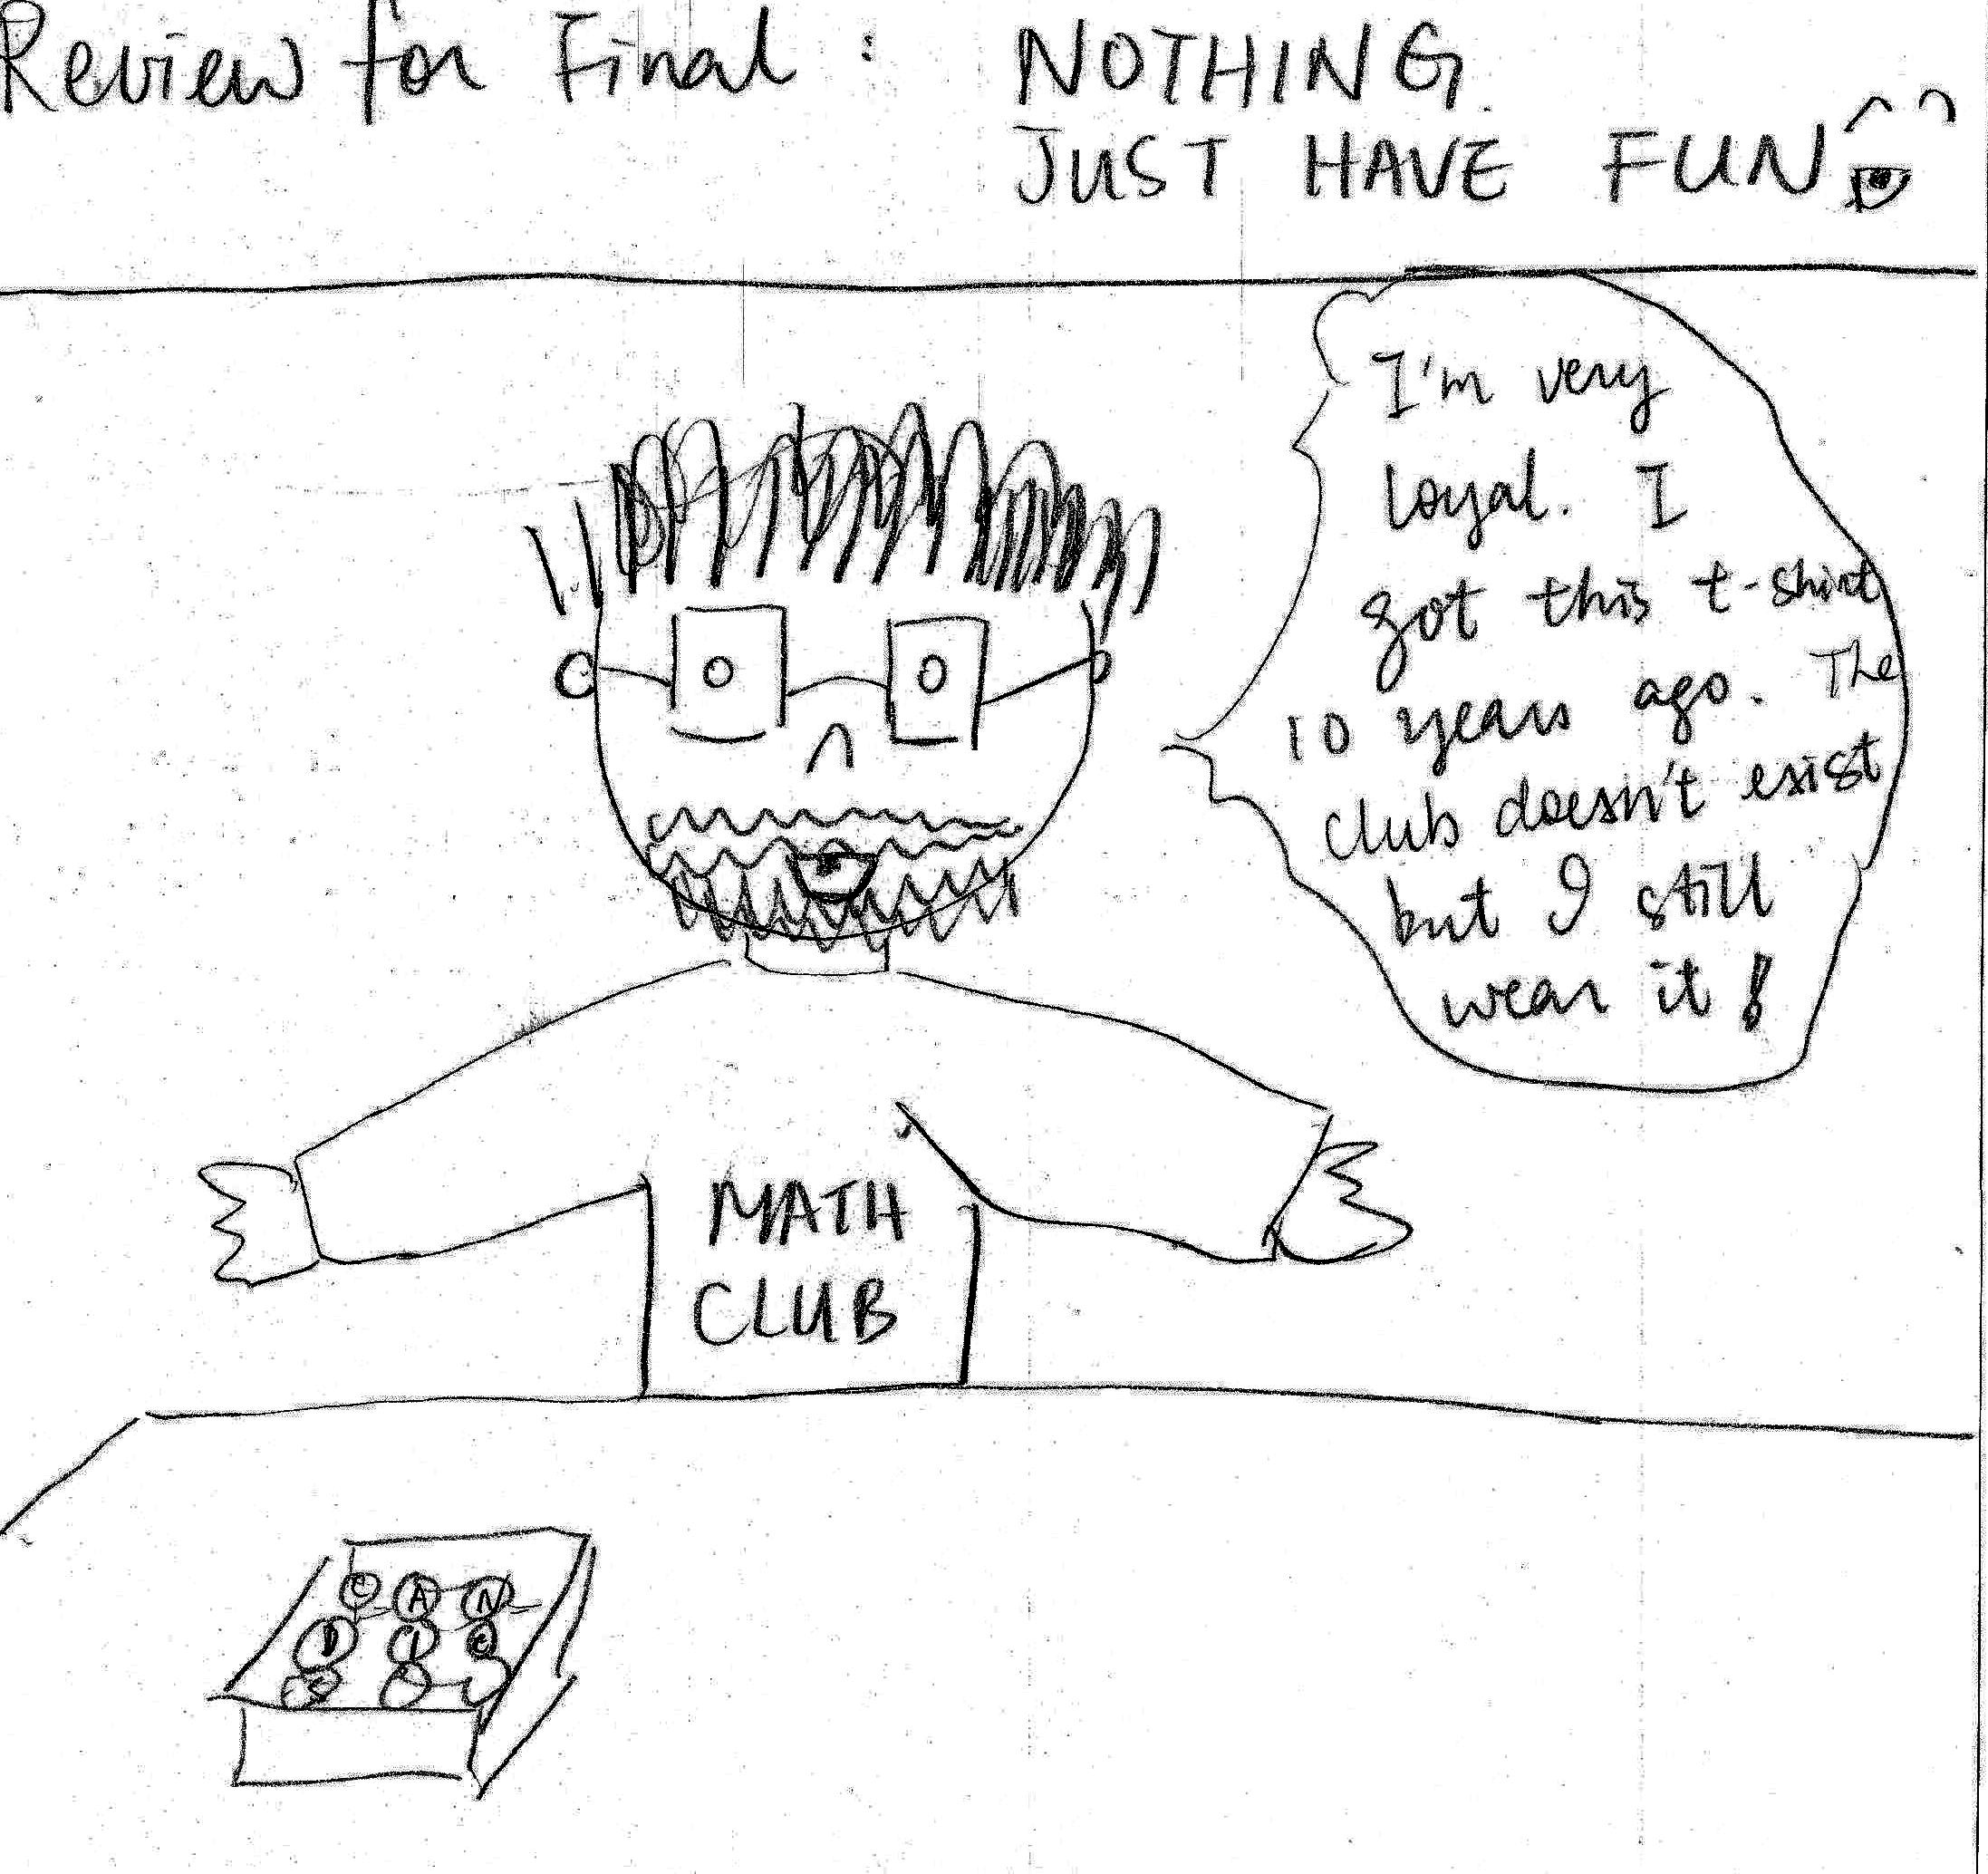 Review for Final : NOTHING
JUST HAVE FUN
I'm very
loyal. I
got this t-shirt
10 years ago. The
club doesn't exist
but I still
wear it!
MATH
CLUB
C A N
D I E